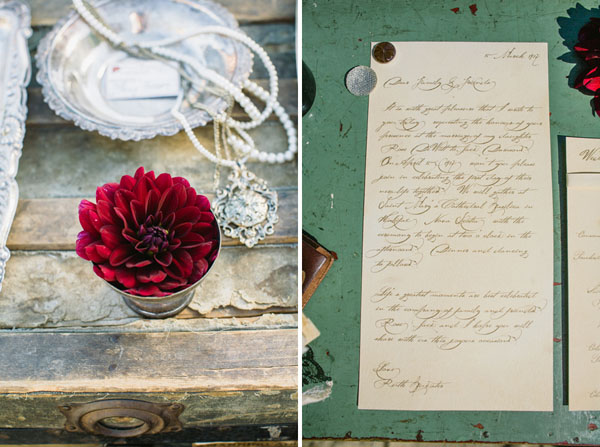 15 March 1917
Dear Family & Friends
It is with great pleasure that I write to
you today requesting the honor of your
presence at the marriage of my daughter
Rose DeWitt to Jack Dawson
On April 15 1917 . Join
in celebrating the first day of their
together We will gather at
Saint Mary's Cathedral Basilica in
Halifax Nova Scotia with the
ceremony to begin at two o'clock in the
afternoon Dinner and dancing
to follow
Life's greatest moments are best celebrated
in the company of family and friends
Rose Jack and I hope you will
share with us this joyous moment
Love
Ruth